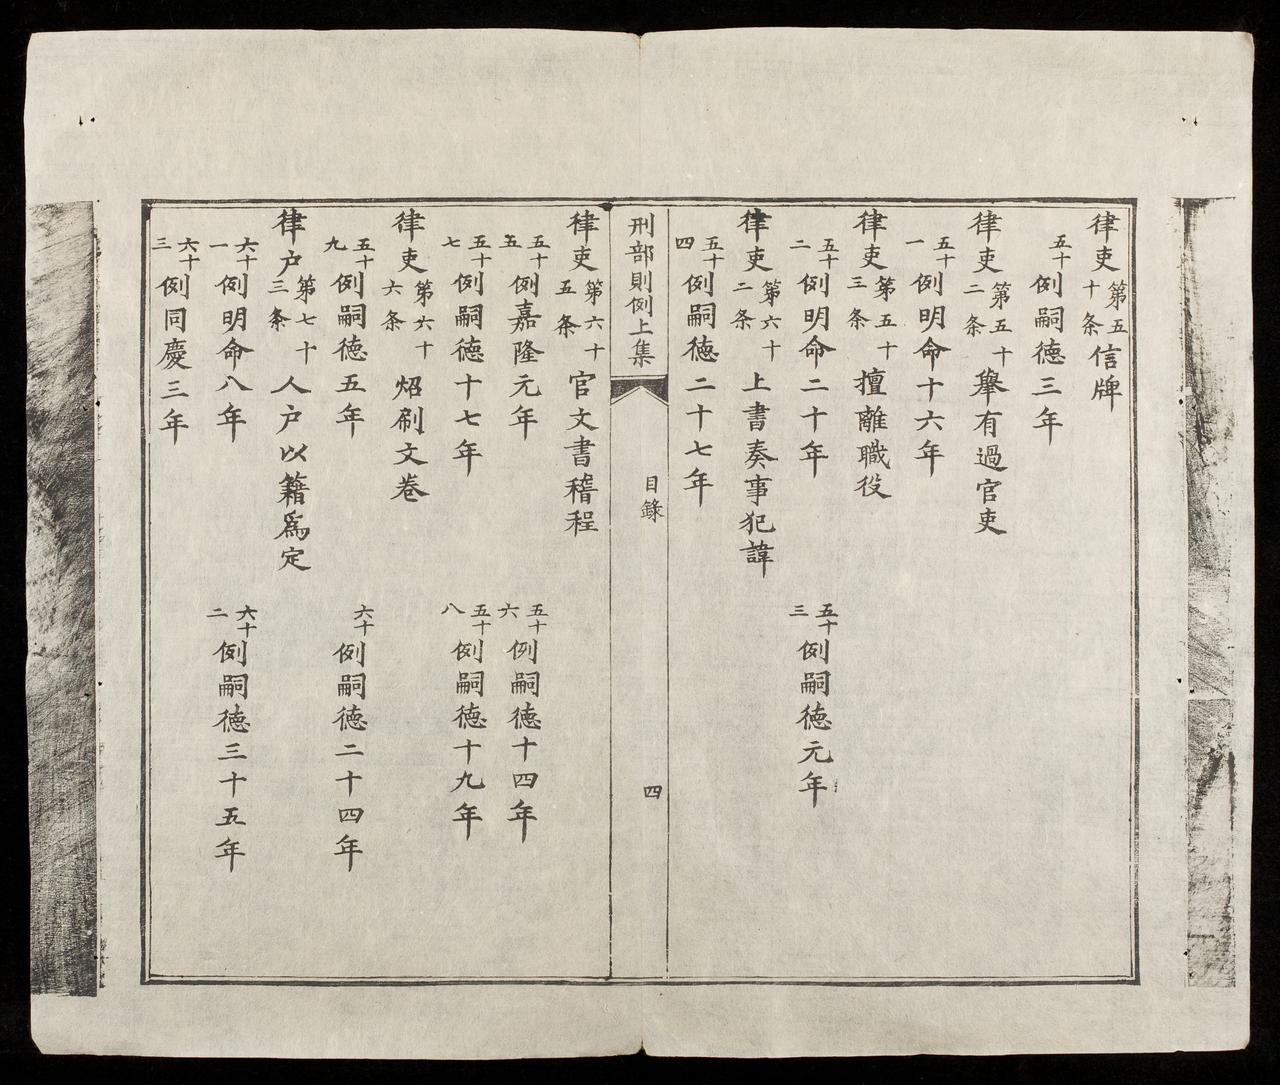 律吏第五十条信牌
五十例嗣德三年
律吏第五十二条舉有過官吏
五十一例明命十六年
律吏第五十三条擅離職役
五十二例明命二十年 五十三例嗣德元年
律吏第六十二条上書奏事犯諱
五十四例嗣德二十七年
刑部則例上集 目錄 四
律吏第六十五条官文書稽程
五十五例嘉隆元年 五十六例嗣德十四年
五十七例嗣德十七年 五十八例嗣德十九年
律吏第六十六条炤刷文卷
五十九例嗣德五年 六十例嗣德二十四年
律户第七十三条人户以籍爲定
六十一例明命八年 六十二例嗣德三十五年
六十三例同慶三年